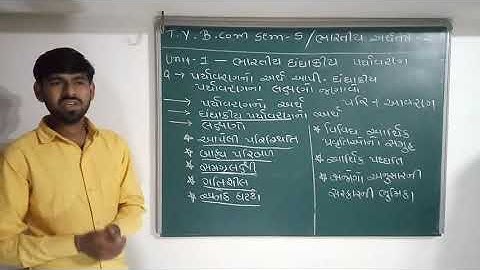 T. Y. B.com sem-5 / ભારતીય અર્થતંત્ર - 2
Unit-1 - ભારતીય ઔદ્યોગિક પર્યાવરણ
Q → પર્યાવરણનો અર્થ આપી. ઔદ્યોગિક
પર્યાવરણના લક્ષણો જણાવો
→ પર્યાવરણનો અર્થ પરિ + આવરણ
→ ઔદ્યોગિક પર્યાવરણનો અર્થ
→ લક્ષણો
* આપેલી પરિસ્થિતિ
* બાહ્ય પરિબળ
* સમગ્રલક્ષી
* ગતિશીલ
* વ્યાપક
* વિવિધ આર્થિક
પ્રવૃત્તિઓનો સમૂહ
* આર્થિક પધ્ધતિ
* સંજોગો અનુસારની
સરકારની ભૂમિકા